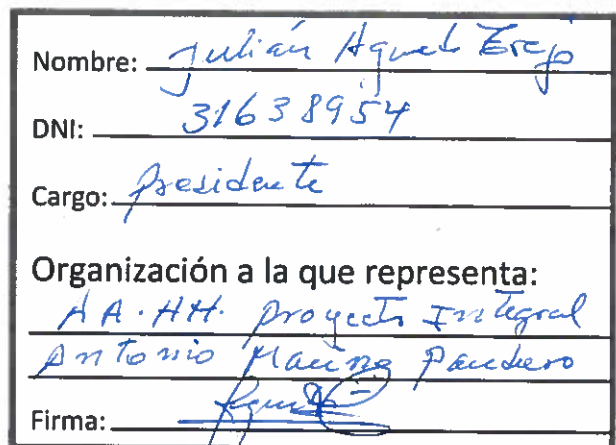 Nombre: Julián
DNI: 31638954
Cargo: presidente
Organización a la que representa:
AA.HH. proyecto Integral
Antonio
Firma: